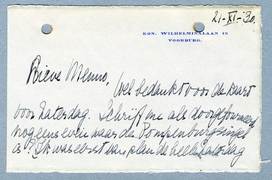 21-XI-'30.
KON. WILHELMINALAAN 18
VOORBURG.
Beste Menno, Wel bedankt voor de kaart
voor Zaterdag. Schrijf me als
nog eens even naar de Pompenburgsingel
Ik was eerst van plan de heele dag